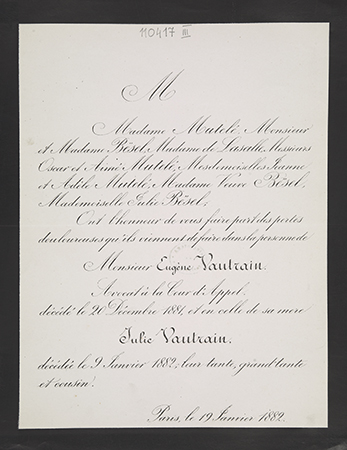 110417 III
M
Madame Mutelé, Monsieur
et Madame Bésel, Madame de Lasalle, Messieurs
Oscar et Aimé Mutelé, Mesdemoiselles Jeanne
et Adèle Mutelé, Madame Veuve Bésel,
Mademoiselle Julie Bésel,
Ont l'honneur de vous faire part des pertes
douloureuses qu'ils viennent de faire dans la personne de
Monsieur Eugène Vautrain,
Avocat à la Cour d'Appel,
décédé le 20 Décembre 1881, et en celle de sa mère
Julie Vautrain,
décédée le 9 Janvier 1882, leur tante, grand'tante
et cousin.
Paris, le 19 Janvier 1882.